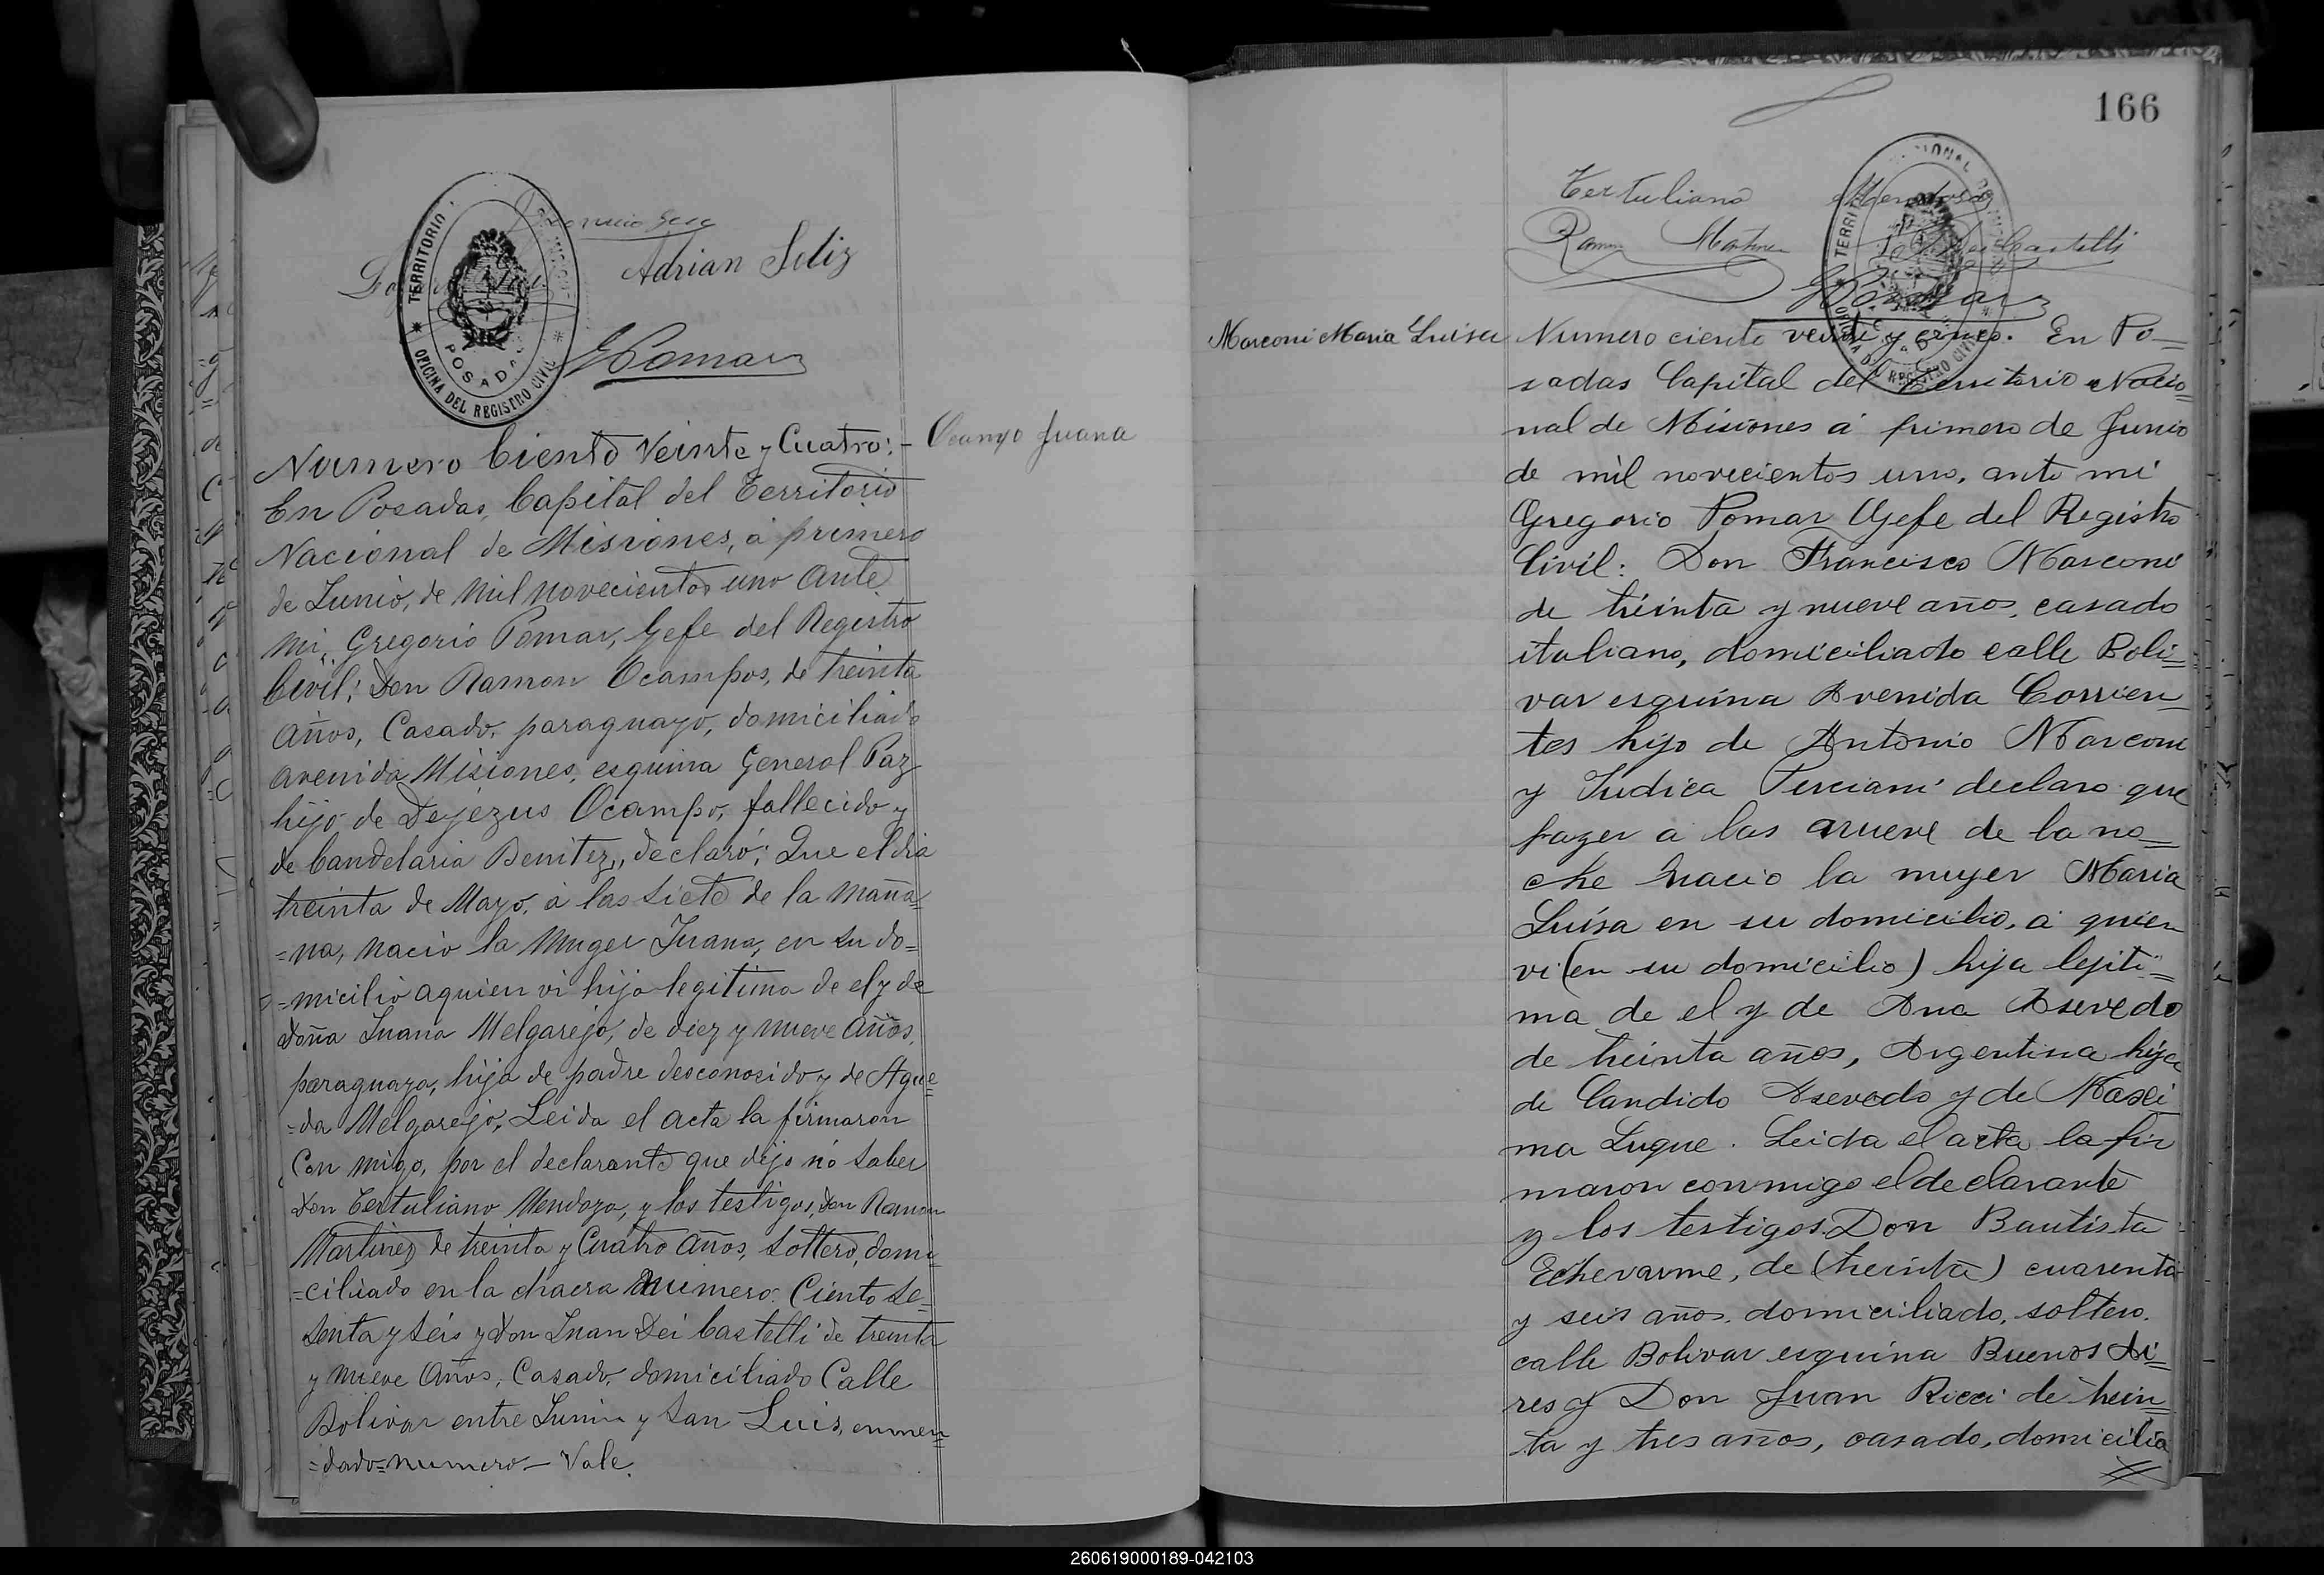 Adrian Seliz
GPomar
TERRITORIO
POSADAS
OFICINA DEL REGISTRO CIVIL
Numero Ciento Veinte y Cuatro:-
Ocampo Juana
En Posadas, Capital del Territorio
Nacional de Misiones, á primero
de Junio, de mil novecientos uno ante
mi, Gregorio Pomar, Gefe del Registro
Civil; Don Ramon Ocampos, de treinta
años, Casado, paraguayo, domiciliado
avenida Misiones, esquina General Paz
hijo de Dejezus Ocampo, fallecido y
de Candelaria Benitez, declaró; Que el dia
treinta de Mayo, á las siete de la maña=
=na, nació la muger Juana, en su do=
=micilio aquien vi hija legitima de el y de
doña Juana Melgarejo, de diez y nueve años,
paraguaya, hija de padre desconosido y de Ague=
=da Melgarejo, Leida el acta la firmaron
Con migo, por el declarante que dijo no saber
don Tertuliano Mendoza, y los testigos, don Ramon
Martinez de treinta y Cuatro años, Soltero, domi=
=ciliado en la chacra numero: Ciento Se=
senta y seis y don Juan Dei Castelli de treinta
y nueve años, Casado, domiciliado Calle
Bolivar entre Junin y San Luis, enmen=
=dado=numero— Vale.
166
Tertuliano Mendoza
Ramon Martinez Juan Dei Castelli
GPomar
TERRITORIO NACIONAL
OFICINA DEL REGISTRO CIVIL
Marconi Maria Luisa
Numero ciento veinte y cinco. En Po=
sadas Capital del Territorio Nacio=
nal de Misiones á primero de Junio
de mil novecientos uno, ante mi
Gregorio Pomar Gefe del Registro
Civil: Don Francisco Marconi
de treinta y nueve años, casado
italiano, domiciliado calle Boli=
var esquina Avenida Corrien=
tes hijo de Antonio Marconi
y Judica Perciani declaro que
hayer a las nueve de la no=
che nacio la muger Maria
Luisa en su domicilio, á quien
vi (en su domicilio) hija lejiti=
ma de el y de Ana Asevedo
de treinta años, Argentina hija
de Candido Asevedo y de Maxi
ma Luque. Leida el acta la fir
maron conmigo el declarante
y los testigos Don Bautista
Echevarne, de (treinta) cuarenta
y seis años, domiciliado, soltero.
calle Bolivar esquina Buenos Ai=
res y Don Juan Ricci de trein=
ta y tres años, casado, domicilia
260619000189-042103